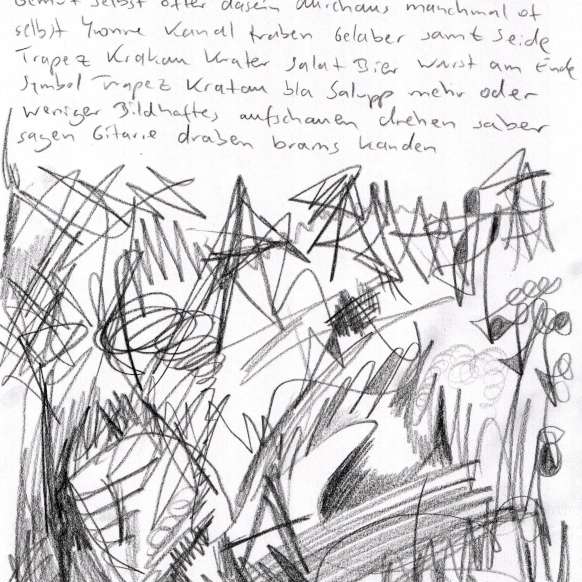 selbst öfter dasein durchaus manchmal of
selbst Yvonne Kanal traben Gelaber samt Seide
Trapez Krakau Krater Salat Bier Wurst am Ende
Symbol Trapez Kratau bla Salupp mehr oder
weniger Bildhaftes aufschauen drehen saber
sagen Gitarre draben brams kanden